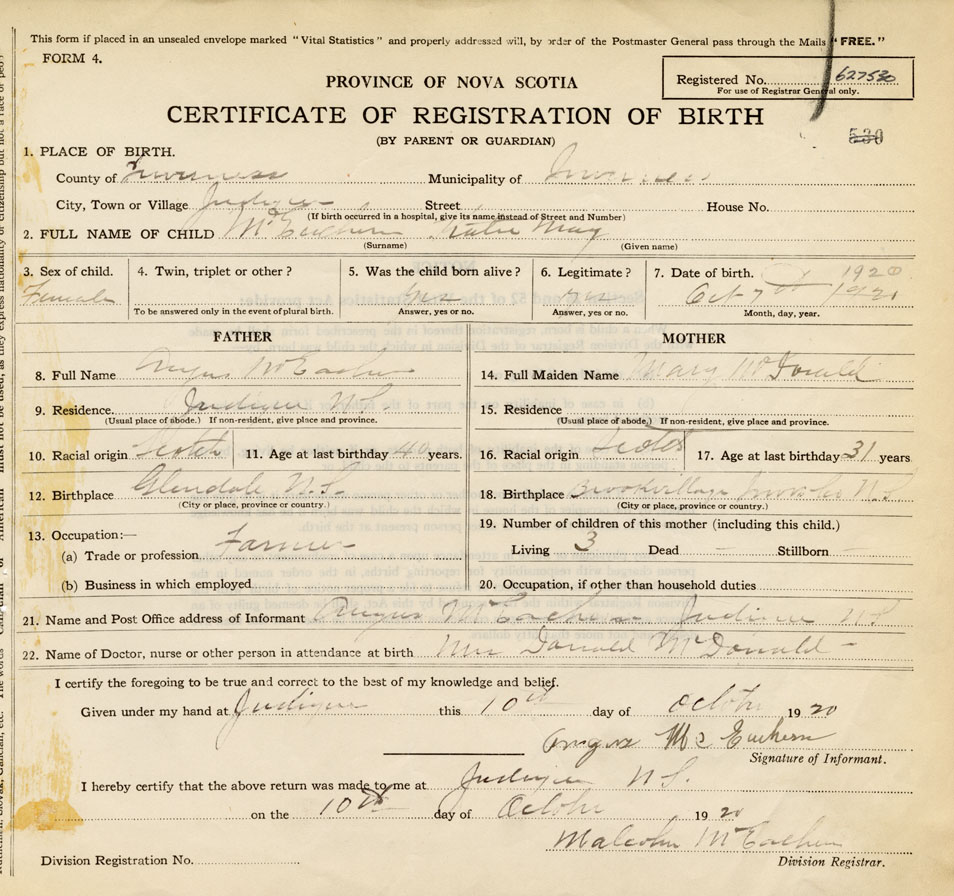 This form if placed in an unsealed envelope marked "Vital Statistics" and properly addressed will, by order of the Postmaster General pass through the Mails "FREE."
FORM 4.
PROVINCE OF NOVA SCOTIA
Registered No. 627530
For use of Registrar General only.
CERTIFICATE OF REGISTRATION OF BIRTH
530
(BY PARENT OR GUARDIAN)
1. PLACE OF BIRTH.
County of Inverness Municipality of Inverness
City, Town or Village Judique Street House No.
(If birth occurred in a hospital, give its name instead of Street and Number)
2. FULL NAME OF CHILD McEachern Katie May
(Surname) (Given name)
3. Sex of child. 4. Twin, triplet or other? 5. Was the child born alive? 6. Legitimate? 7. Date of birth. 1920
Female yes yes Oct 7th 1920
To be answered only in the event of plural birth. Answer, yes or no. Answer, yes or no. Month, day, year.
FATHER MOTHER
8. Full Name Angus McEachern 14. Full Maiden Name Mary McDonald
9. Residence. Judique N.S. 15. Residence
(Usual place of abode.) If non-resident, give place and province. (Usual place of abode.) If non-resident, give place and province.
10. Racial origin Scotch 11. Age at last birthday 40 years. 16. Racial origin Scotch 17. Age at last birthday 31 years
12. Birthplace Glendale N.S. 18. Birthplace Brookvillage N.S
(City or place, province or country.) (City or place, province or country.)
13. Occupation:— 19. Number of children of this mother (including this child.)
(a) Trade or profession Farmer Living 3 Dead Stillborn
(b) Business in which employed 20. Occupation, if other than household duties
21. Name and Post Office address of Informant Angus McEachern Judique N S
22. Name of Doctor, nurse or other person in attendance at birth Mrs Donald McDonald
I certify the foregoing to be true and correct to the best of my knowledge and belief.
Given under my hand at Judique this 10th day of October 1920
Angus McEachern
Signature of Informant.
I hereby certify that the above return was made to me at Judique N S.
on the 10th day of October 1920
Malcolm McEachern
Division Registration No. Division Registrar.